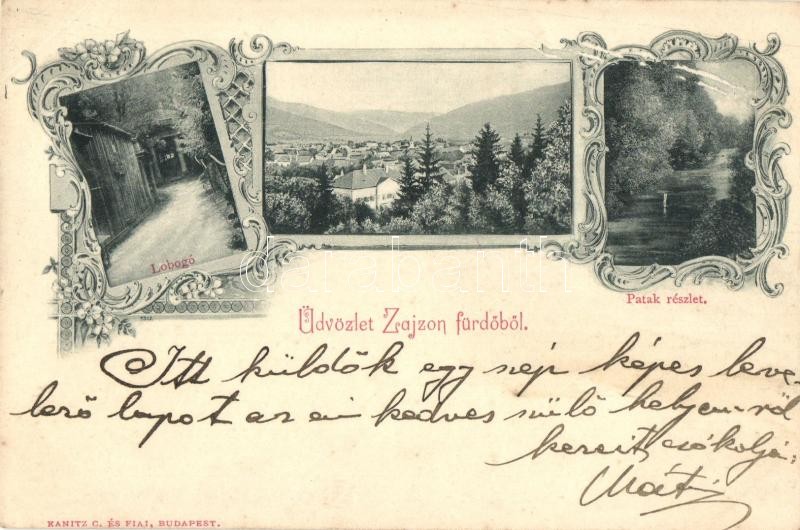 Lobogó
Patak részlet.
Üdvözlet Zajzon fürdőből.
Itt küldök egy szép képes leve-
lező lapot az én kedves szülő helyem-ről
kezeit csókolja:
Máté
KANITZ C. ÉS FIAI, BUDAPEST.
darabanth